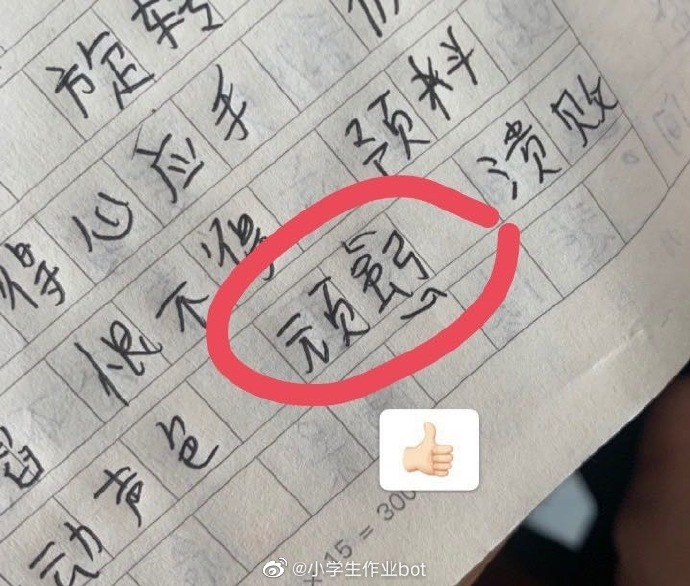 旋转
得心应手
恨不得 预料
动声色 顽 溃败
× 15 = 300
@小学生作业bot